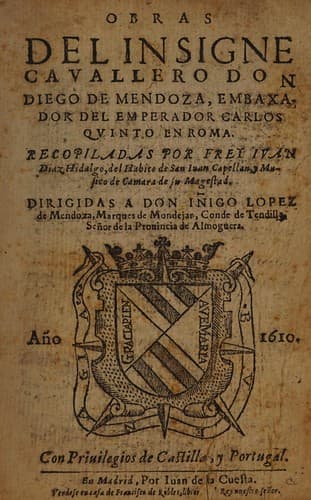 OBRAS
DEL INSIGNE
CAVALLERO DON
DIEGO DE MENDOZA, EMBAXA,
DOR DEL EMPERADOR CARLOS
QVINTO EN ROMA.
RECOPILADAS POR FREY IVAN
Diaz Hidalgo, del Habito de San Iuan, Capellan, y Mu-
sico de Camara de su Magestad.
DIRIGIDAS A DON IÑIGO LOPEZ
de Mendoza, Marques de Mondejar, Conde de Tendilla,
Señor de la Prouincia de Almoguera.
BVENA
GRACIA PLEN
AVE MARIA
GVIA
Año 1610.
Con Priuilegios de Castilla, y Portugal.
En Madrid, Por Iuan de la Cuesta.
Vendese en casa de Francisco de Robles, librero del Rey nuestro señor.